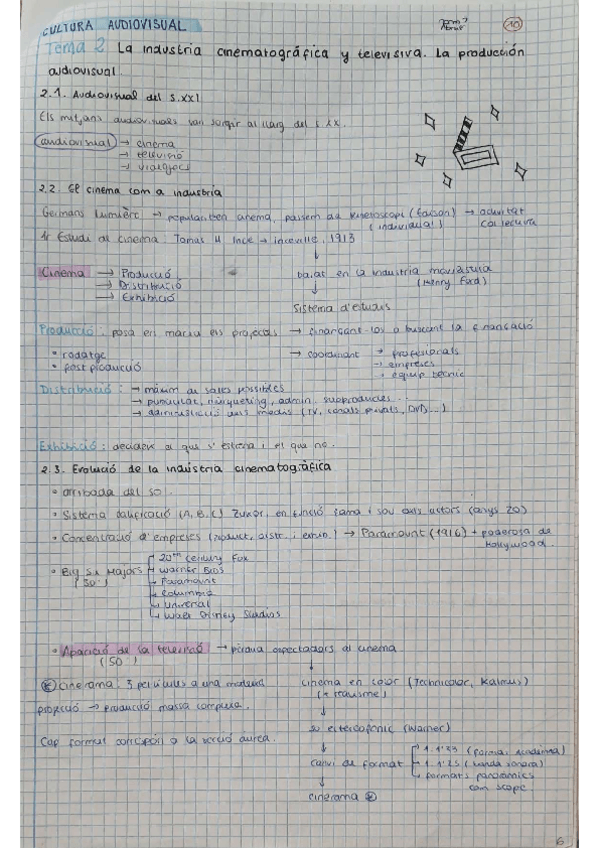 CULTURA AUDIOVISUAL
10
Tema 2 La industria cinematográfica y televisiva. La producción
audiovisual.
2.1. Audiovisual del S.XXI
Els mitjans audiovisuals van sorgir al llarg del s. XX.
audiovisual → cinema
→ televisió
→ videojocs
2.2. El cinema com a industria
Germans Lumière → cinema, passem de kinetoscopi (Edison) → activitat
(individual) col·lectiva
1r Estudi al cinema: Tomas H Ince → Inceville, 1913
Cinema → Producció
→ Distribució
→ Exhibició
basat en la industria
(Henry Ford)
Sistema d'estudis
Producció: posa en marxa els projectes → finançant-los o buscant la finançació
• rodatge
• post producció
→ coordinant → professionals
→ empreses
→ equip tècnic
Distribució: → màxim de sales possibles
→ publicitat, màrqueting, admin, subproductes...
→ altres medis (TV, canals privats, DVD...)
Exhibició: decideix el que s'estrena i el que no.
2.3. Evolució de la indústria cinematogràfica
• arribada del so.
• Sistema calificació (A, B, C) Zukor, en funció fama i sou dels actors (anys 20)
• Concentració d'empreses (product, distr. i exhib.) → Paramount (1916) + poderosa de
Hollywood.
• Big Six Majors
(50')
20th Century Fox
Warner Bros
Paramount
Columbia
Universal
Walt Disney Studios
• Aparició de la televisió → espectadors al cinema
(50')
* cinerama: 3 pel·lícules a una mateixa
projecció → producció massa complexa.
Cap format la secció àurea.
cinema en color (Technicolor, Kalmus)
(+ realisme)
so estereofònic (Warner)
canvi de format
1:1'33 (format acadèmia)
1:1'25 (banda sonora)
formats panoràmics
com scope.
cinerama *
6